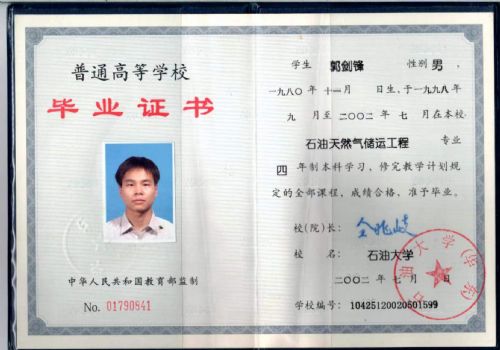 普通高等学校
毕业证书
中华人民共和国教育部监制
No. 01790841
学生 郭剑锋 性别 男，
一九八〇年 十一月 日生，于一九九八年
九 月至二〇〇二年 七 月在本校
石油天然气储运工程 专业
四 年制本科学习，修完教学计划规
定的全部课程，成绩合格，准予毕业。
校(院)长：
校 名： 石油大学
二〇〇二年 七 月 日
学校编号：10425120020501599
石油大学(华东)